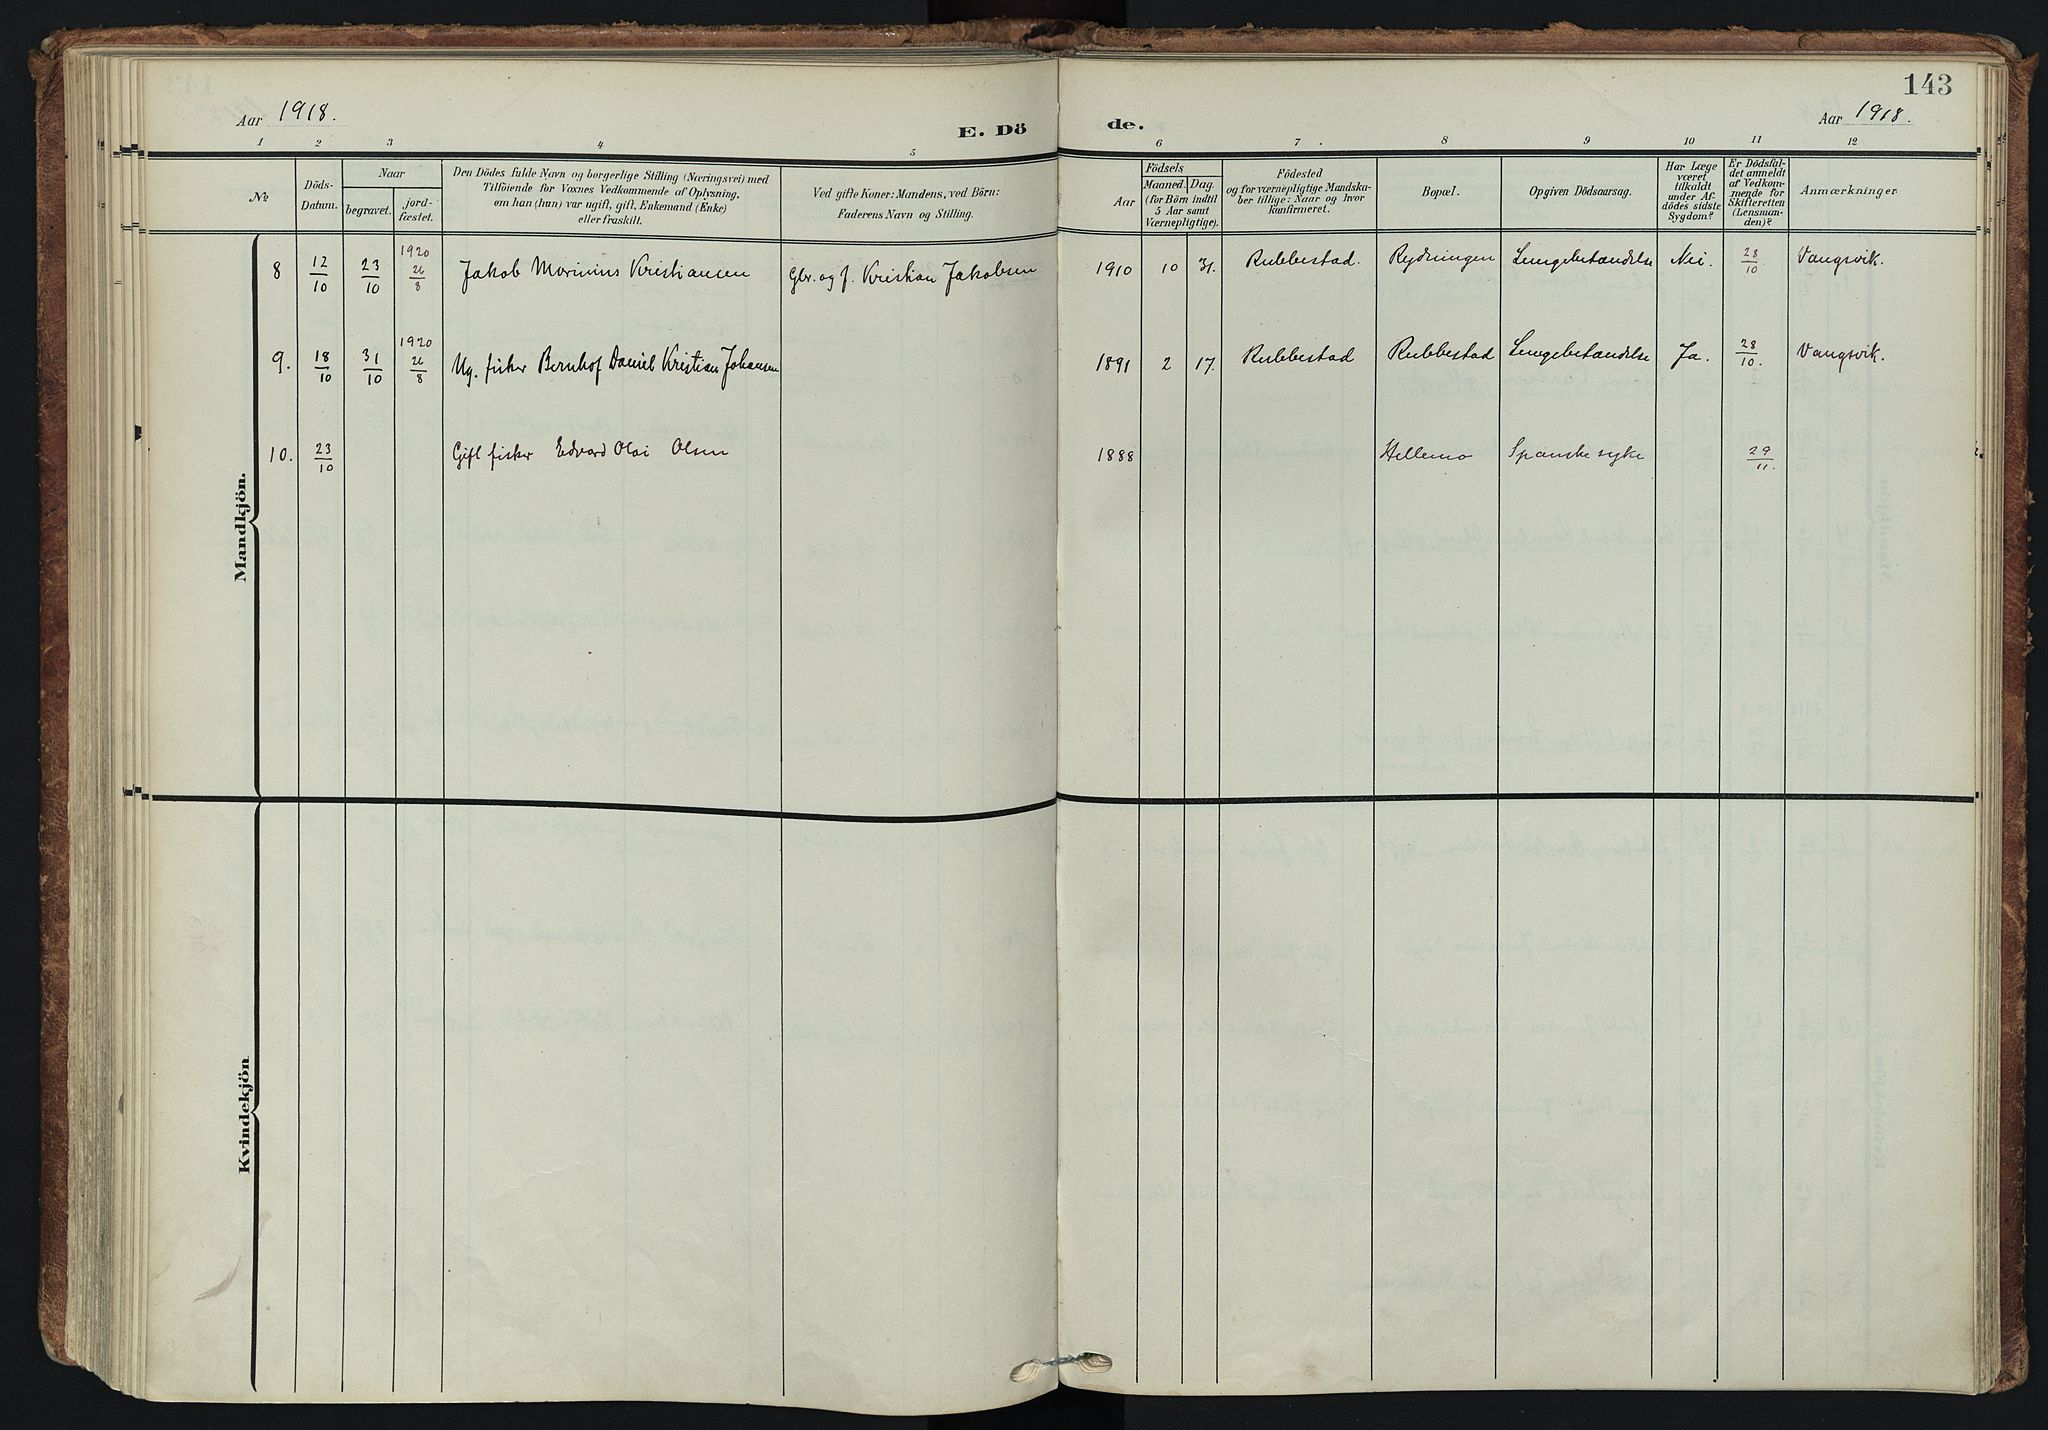 143
Aar 1918.
E. Dö
de.
Aar 1918.
1 2 3 4 5 6 7. 8 9 10 11 12
№
Döds-
Datum.
Naar
begravet.
jord-
fæstet.
Den Dödes fulde Navn og borgerlige Stilling (Næringsvei) med
Tilföiende for Voxnes Vedkommende af Oplysning,
om han (hun) var ugift, gift, Enkemand (Enke)
eller fraskilt.
Ved gifte Koner: Mandens, ved Börn:
Faderens Navn og Stilling.
Födsels
Aar
Maaned. Dag.
(for Börn indtil
5 Aar samt
Værnepligtige).
Födested
og for værnepligtige Mandska-
ber tillige: Naar og hvor
konfirmeret.
Bopæl.
Opgiven Dödsaarsag.
Har Læge
været
tilkaldt
under Af-
dödes sidste
Sygdom?
Er Dödsfal-
det anmeldt
af Vedkom-
mende for
Skifteretten
(Lensman-
den)?
Anmærkninger.
Mandkjön.
8 12/10 23/10 1920 26/8 Jakob Marinius Kristiansen Gbr. og f. Kristian Jakobsen 1910 10 31. Rubbestad. Rydningen Lungebetændelse Nei. 28/10 Vangsvik.
9. 18/10 31/10 1920 26/8 Ug. fisker Bernhof Daniel Kristian Johansen 1891 2 17. Rubbestad Rubbestad Lungebetændelse Ja. 28/10. Vangsvik.
10. 23/10 Gift fisker Edvard Olai Olsen 1888 Hellemo Spanske syke 29/11.
Kvindekjön